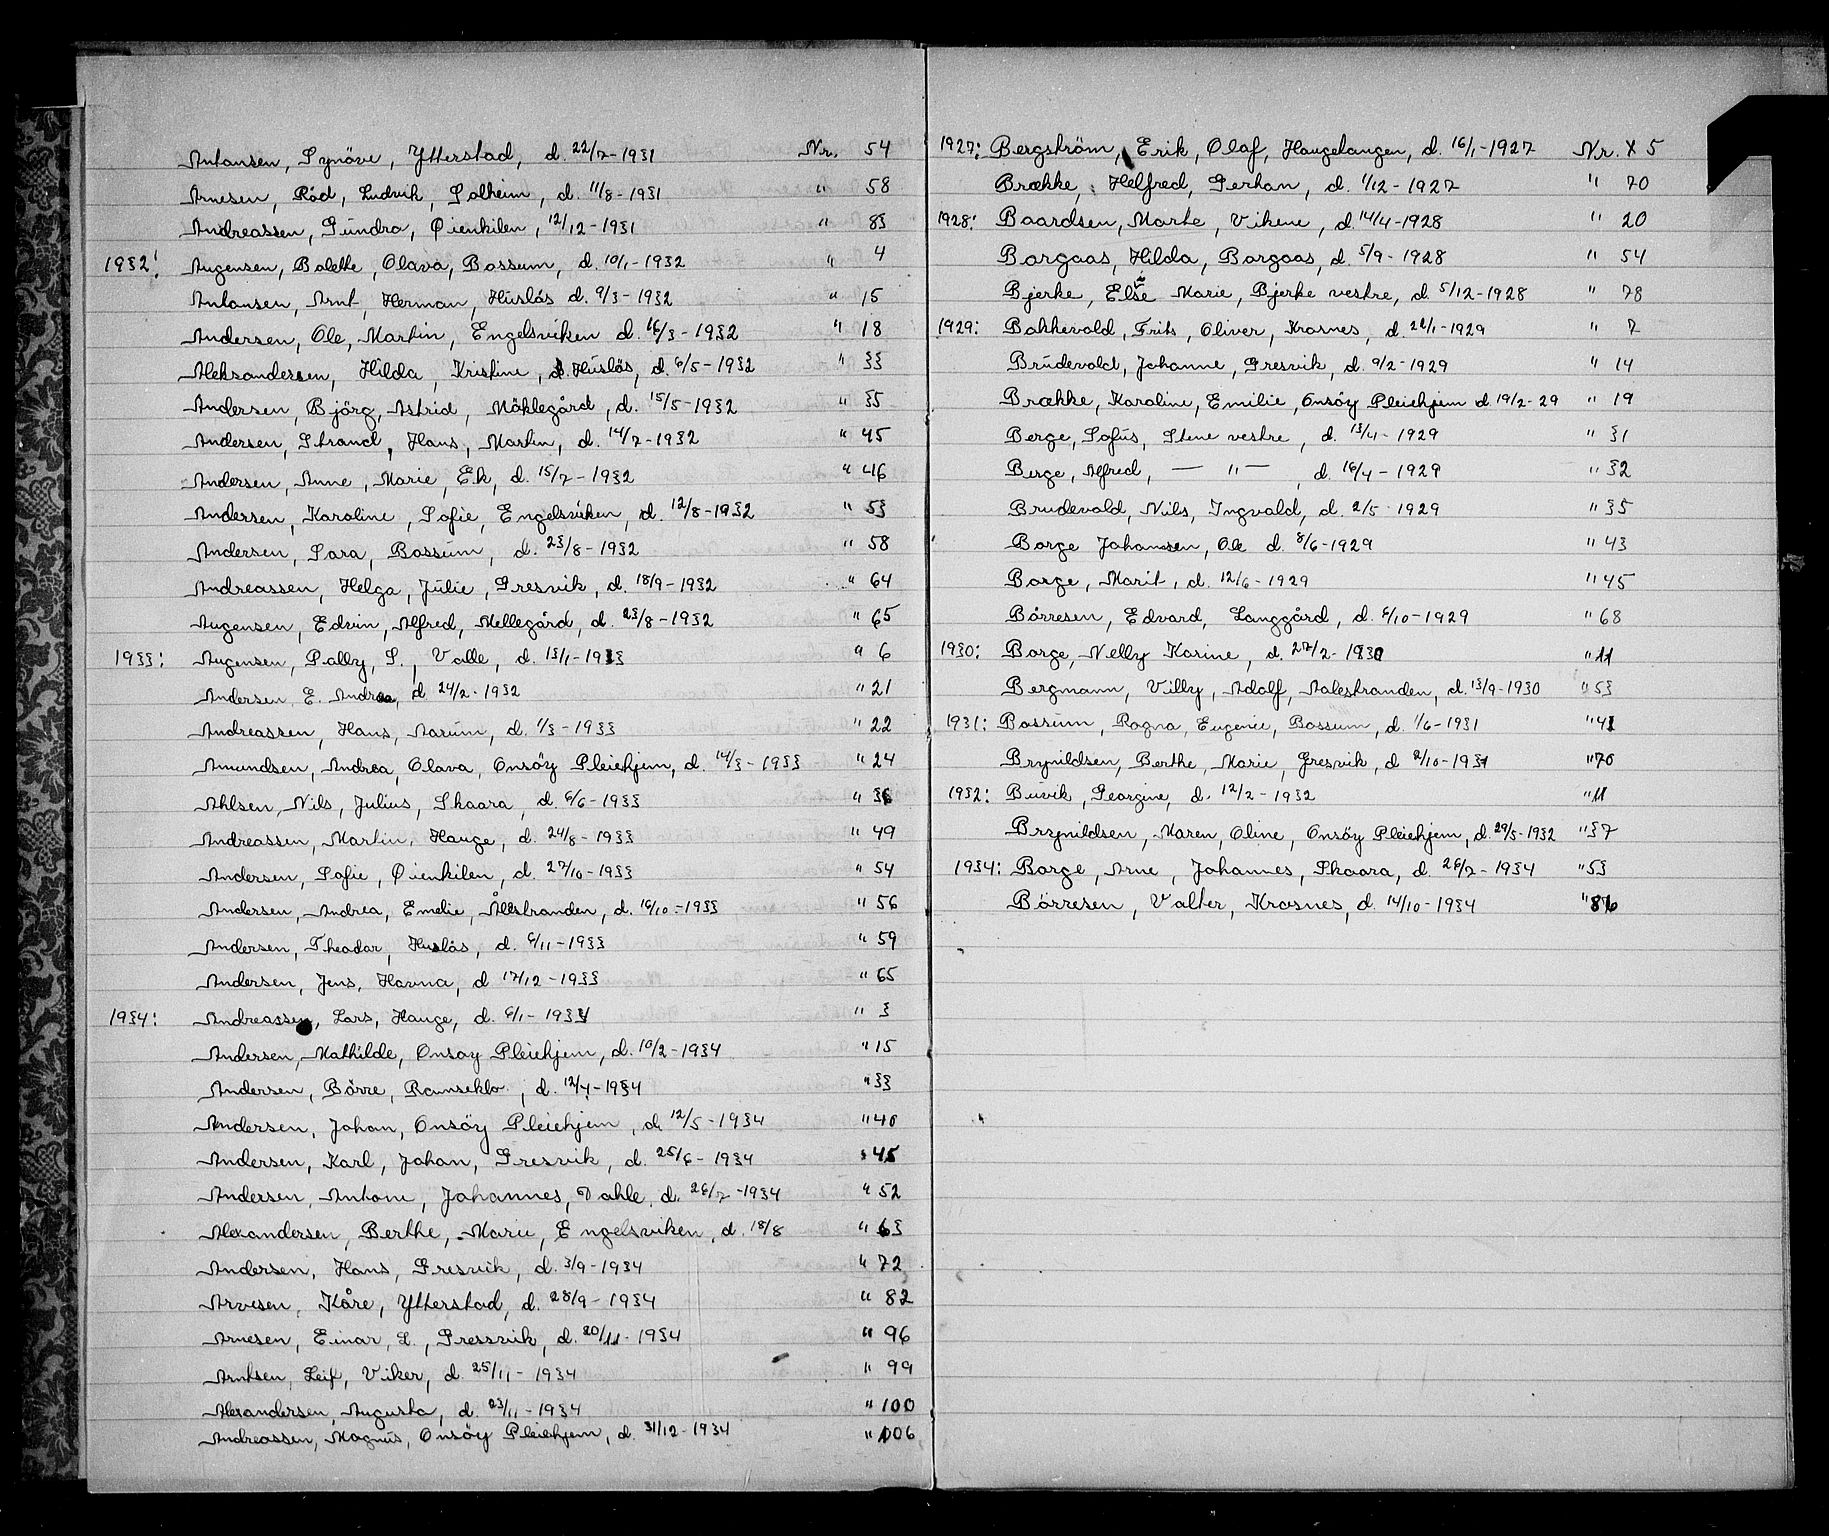 Antonsen, Synöve, Ytterstad, d. 22/7-1931 Nr. 54
Arnesen, Röd, Ludvik, Solheim, d. 11/8-1931 " 58
Andreassen, Gundra, Øienkilen, 12/12-1931 " 83
1932: Augensen, Bolette, Olava, Bossum, d. 10/1-1932 " 4
Antonsen, Arnt, Herman, Huslös d. 9/3-1932 " 15
Andersen, Ole, Martin, Engelsviken d. 16/3-1932 " 18
Aleksandersen, Hilda, Kristine, Huslös, d. 6/5-1932 " 33
Andersen, Björg, Astrid, Möklegård, d. 15/5-1932 " 35
Andersen, Strand, Hans, Martin, d. 14/7-1932 " 45
Andersen, Anne, Marie, Ek, d. 15/7-1932 " 46
Andersen, Karoline, Sofie, Engelsviken, d. 12/8-1932 " 53
Andersen, Sara, Bossum, d. 23/8-1932 " 58
Andreassen, Helga, Julie, Gresvik, d. 18/9-1932 " 64
Augensen, Edvin, Alfred, Mellegård, d. 23/8-1932 " 65
1933: Augensen, Palby, S., Valle, d. 13/1-1933 " 6
Andersen E. Andrea, d 24/2-1932 " 21
Andreassen, Hans, Aarum, d. 1/3-1933 " 22
Amundsen, Andrea, Olava, Onsöy Pleiehjem, d. 14/3-1933 " 24
Ahlsen, Nils, Julius, Skaara, d. 6/6-1933 " 36
Andreassen, Martin, Hauge, d. 24/8-1933 " 49
Andersen, Sofie, Øienkilen, d. 27/10-1933 " 54
Andersen, Andrea, Emelie, Ålestranden, d. 16/10-1933 " 56
Andersen, Theodor, Huslös, d. 6/11-1933 " 59
Andersen, Jens, Havna, d 17/12-1933 " 65
1934: Andreassen, Lars, Hauge, d. 6/1-1934 " 3
Andersen, Mathilde, Onsoy Pleiehjem, d. 10/2-1934 " 15
Andersen, Börre, Ramseklo, d. 12/4-1934 " 33
Andersen, Johan, Onsöy Pleiehjem, d. 12/5-1934 " 40
Andersen, Karl, Johan, Gresvik, d. 25/6-1934 " 45
Andersen, Antone, Johannes, Dahle, d. 26/7-1934 " 52
Alexandersen, Berthe, Marie, Engelsviken, d. 18/8 " 63
Andersen, Hans, Gresvik, d. 3/9-1934 " 72
Arvesen, Kåre, Ytterstad, d. 28/9-1934 " 82
Arnesen, Einar, L., Gressvik, d. 20/11-1934 " 96
Arntsen, Leif, Viker, d. 25/11-1934 " 99
Alexandersen, Augusta, d. 23/11-1934 " 100
Andreassen, Magnus, Onsöy Pleiehjem, d. 31/12-1934 " 106
1927: Bergström, Erik, Olaf, Haugelangen, d. 16/1-1927 Nr. X 5
Brække, Helfred, Gerhan, d. 1/12-1927 " 70
1928: Baardsen, Marte, Vikene, d. 14/4-1928 " 20
Borgaas, Hilda, Borgaas, d. 5/9-1928 " 54
Bjerke, Else Marie, Bjerke vestre, d. 5/12-1928 " 78
1929: Bakkevold, Frits, Oliver, Krosnes, d. 22/1-1929 " 7
Brudevold, Johanne, Gresvik, d. 9/2-1929 " 14
Brække, Karoline, Emilie, Onsöy Pleiehjem d. 19/2-29 " 19
Berge, Sofus, Stene vestre, d. 13/4-1929 " 31
Berge, Alfred, — " —, d. 16/4-1929 " 32
Brudevold, Nils, Ingvald, d. 2/5 1929 " 35
Borge Johannsen, Ole d. 8/6-1929 " 43
Borge, Marit, d. 12/6-1929 " 45
Börresen, Edvard, Langgård, d. 6/10-1929 " 68
1930: Borge, Nelly Karine, d. 27/2-1930 " 11
Bergmann, Villy, Adolf, Aalestranden, d. 13/9-1930 " 53
1931: Bossum, Ragna, Eugenie, Bossum, d. 1/6-1931 " 41
Brynildsen, Berthe, Marie, Gresvik, d 2/10-1931 " 70
1932: Buvik, Georgine, d. 12/2-1932 " 11
Brynildsen, Maren, Oline, Onsöy Pleiehjem, d. 29/5-1932 " 37
1934: Borge, Arne, Johannes, Skaara, d. 26/7-1934 " 53
Börresen, Valter, Krosnes, d. 14/10-1934 " 86